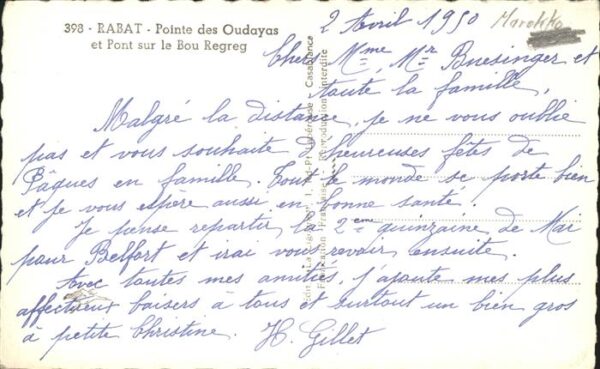 398 - RABAT - Pointe des Oudayas
et Pont sur le Bou Regreg
2 Avril 1950
Marokko
Chers Mme, Mr Buesinger et
toute la famille,
Malgré la distance, je ne vous oublie
pas et vous souhaite d'heureuses fêtes de
Pâques en famille. Tout le monde se porte bien
et je vous espère aussi en bonne santé.
Je pense repartir la 2eme quinzaine de Mai
pour Belfort et irai vous revoir ensuite.
Avec toutes mes amitiés, j'ajoute mes plus
affectueux baisers à tous et surtout un bien gros
à petite Christine. H. Gillet
Casablanca
Reproduction interdite